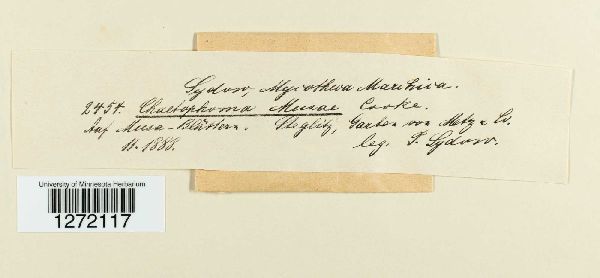 Sydow, Mycotheca Marchica.
2454. Chaetophoma Musae Cooke.
Auf Musa-Blättern. Steglitz, Garten von Metz & Co.
11.1888. leg. P. Sydow.
University of Minnesota Herbarium
1272117